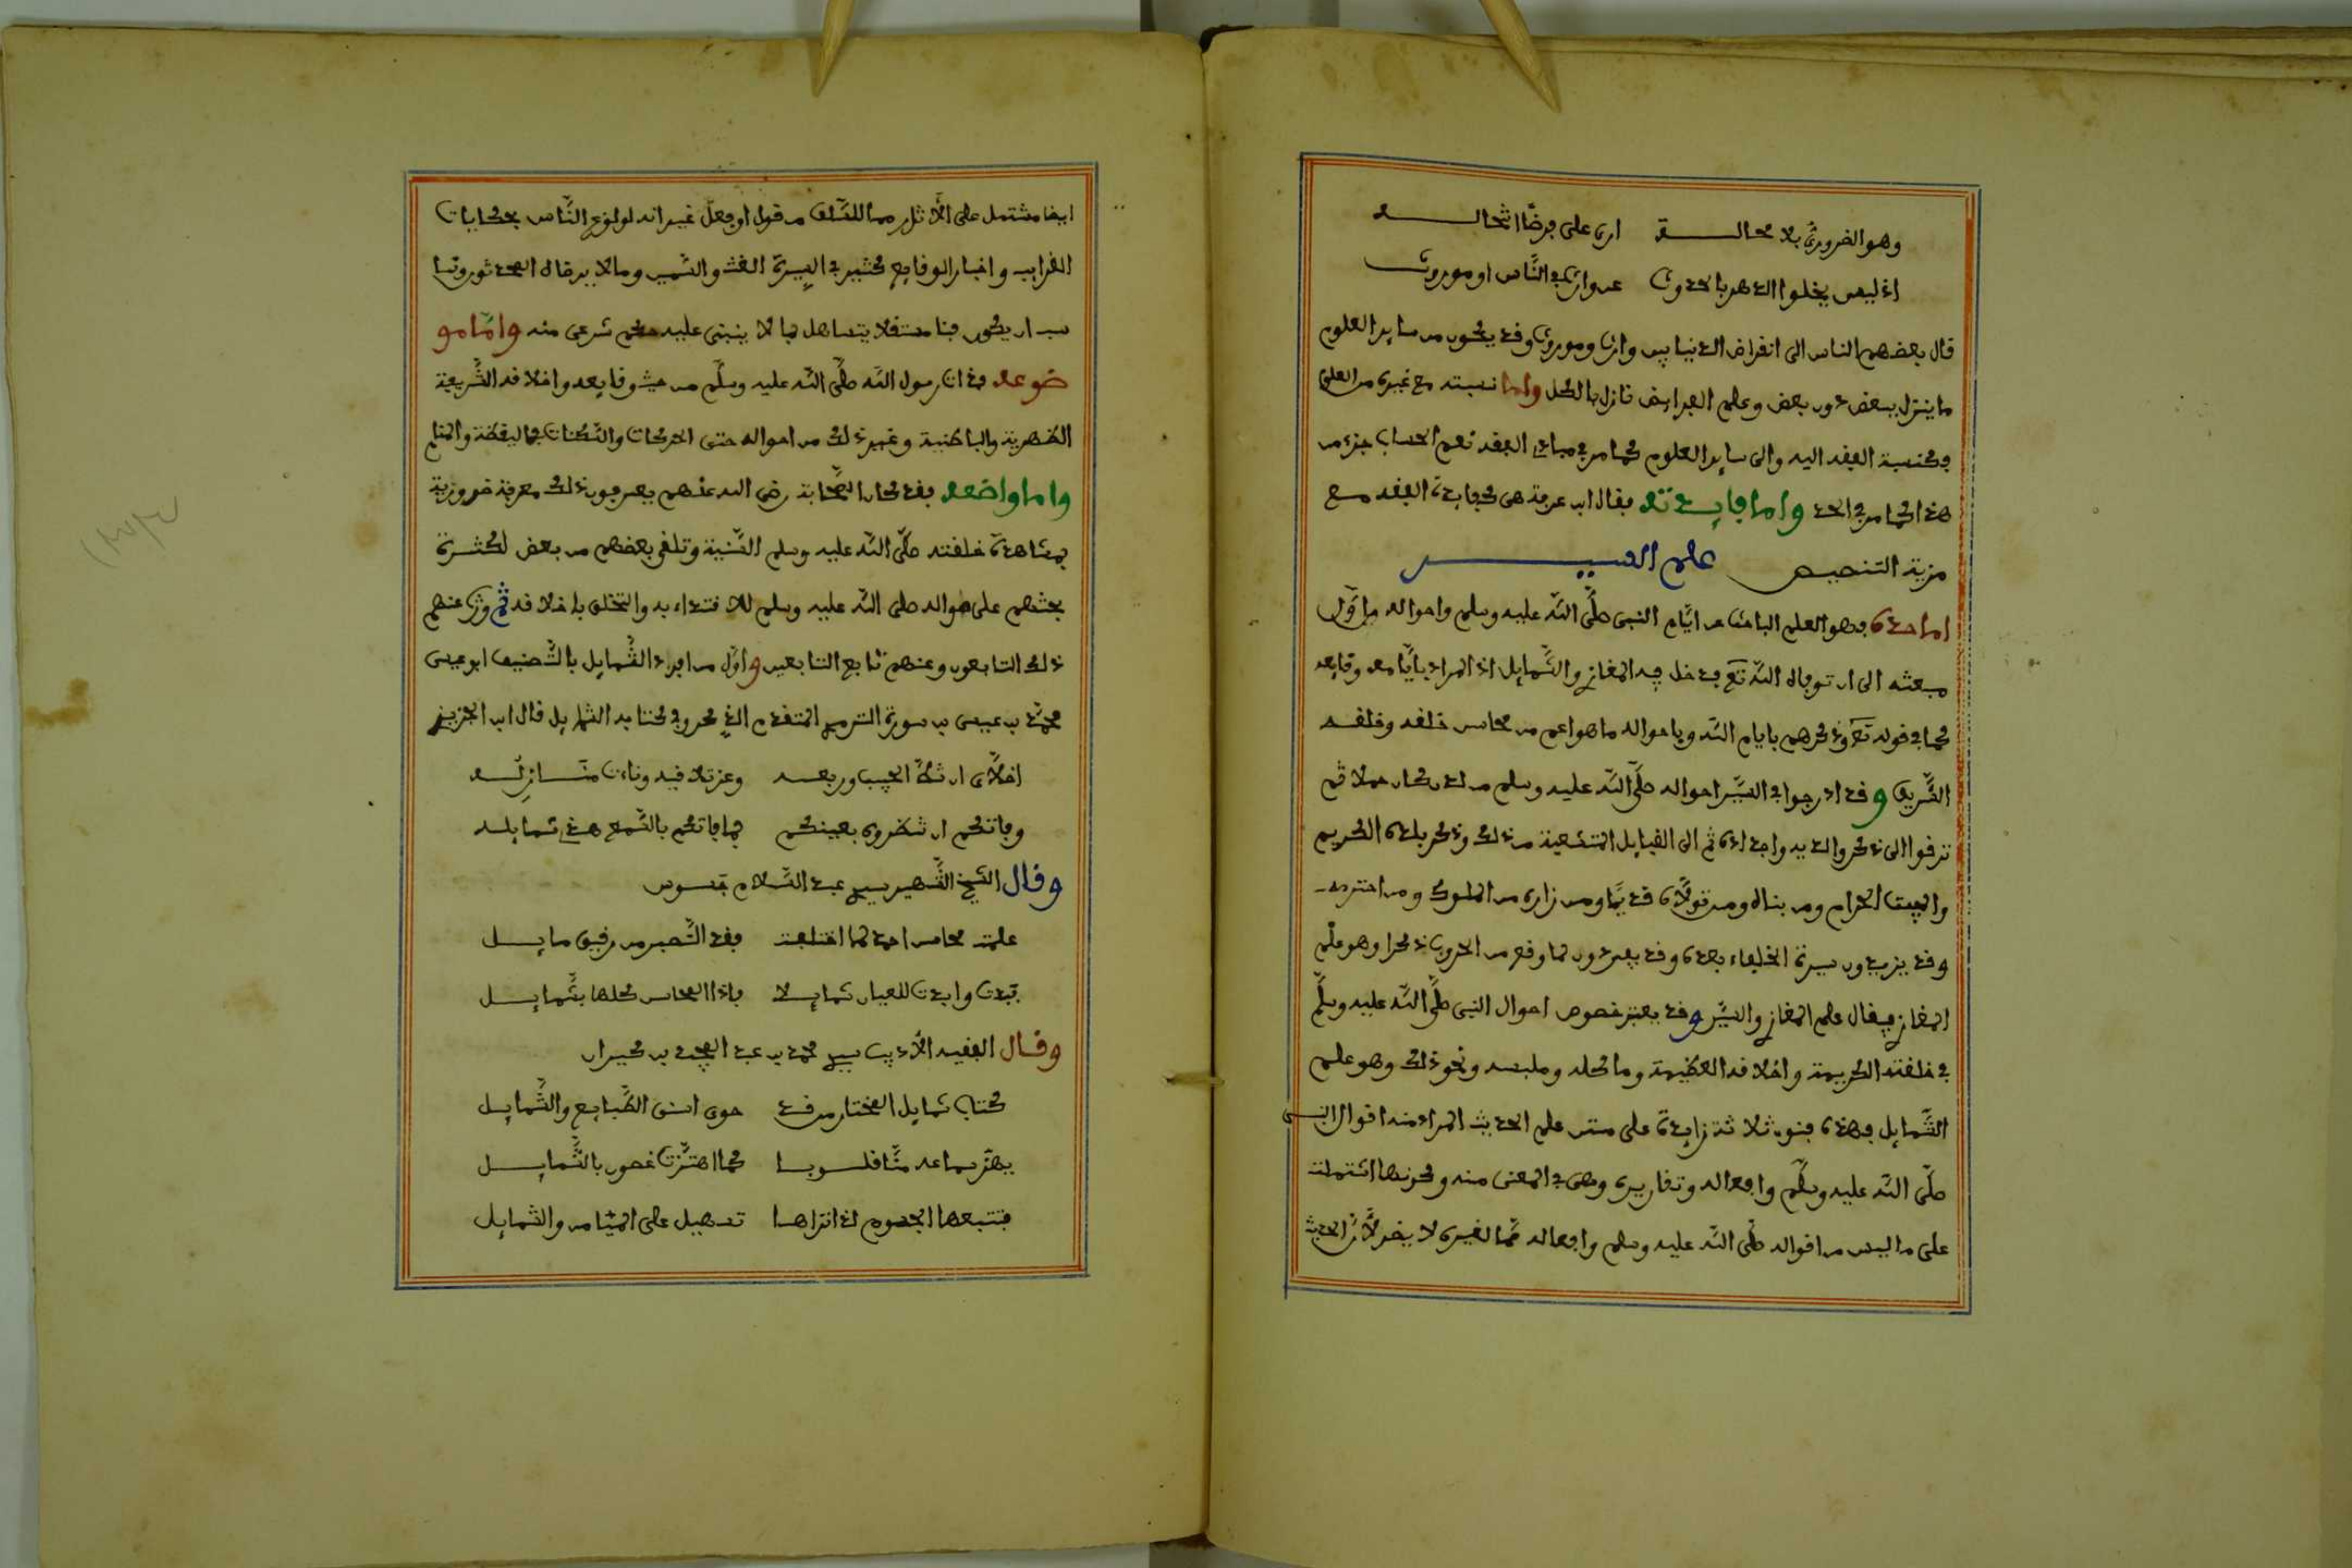 وهو الضروري بلا محالة ارى على فرضا اثحاله
اذ ليس يخلوا الدهر بالحدوث عن وارث في الناس او موروث
قال بعضهم الناس الى انقراض الدنيا بين وارث وموروث وقد يكون من ساير العلوم
ما ينزل ببعض دون بعض وعلم الفرايض نازل بالكل واما نسبته مع غيره من العلوم
فكنسبة الفقه اليه والى ساير العلوم كما مر في مبادي الفقه نعم الحساب جزء من
هذا كما مر في الحد واما فايدته فقال ابن عرفة هي كفايدة الفقه مع
مزية التنصيص علم السير
اما حده فهو العلم الباحث عن ايام النبي صلى الله عليه وسلم واحواله من اول
مبعثه الى ان توفاه الله تع فدخل فيه المغازي والشمايل اذ المراد بايامه وقايعه
كما في قوله تع وذكرهم بايام الله وباحواله ما هو اعم من محاسن خلقه وخلقه
الشريف وقد ادرجوا في السير احواله صلى الله عليه وسلم من لدن كان حملا ثم
ترقوا الى ذكر والديه واجداده ثم الى القبايل المتشعبة من ذلك وذكر بلده الكريم
والبيت الحرام ومن بناه ومن تولاه قديما ومن زاره من الملوك ومن احترمه
وقد يزيدون سيرة الخلفاء بعده وقد يفردون لما وقع من الحروب ذكرا وهو علم
المغازي فيقال علم المغازي والسير وقد يعتبر خصوص احوال النبي صلى الله عليه وسلم
في خلقته الكريمة واخلاقه العظيمة وماكله وملبسه ونحو ذلك وهو علم
الشمايل فهذه فنون ثلاثة زايدة على متن علم الحديث المراد منه اقوال النبي
صلى الله عليه وسلم وافعاله وتقاريره وهي في المعنى منه وكونها اشتملت
على ما ليس من اقواله صلى الله عليه وسلم وافعاله مما لغيره لا يضر لان الحديث
ايضا مشتمل على الاثار مما للسلف من قول او فعل غير انه لولوع الناس بحكايات
الغرايب واخبار الوقايع كثير في السيرة الغث والسمين وما لا يرضاه المحدثون وناسب
ان يكون فنا مستقلا يتساهل فيما لا ينبني عليه حكم شرعي منه واما مو
ضوعه فذات رسول الله صلى الله عليه وسلم من حيث وقايعه واخلاقه الشريفة
الظهرية والباطنية وغير ذلك من احواله حتى الحركات والسكنات في اليقظة والمنام
واما واضعه فقد كان الصحابة رضي الله عنهم يعرفون ذلك معرفة ضرورية
بمشاهدة خلقته صلى الله عليه وسلم السنية وتلقي بعضهم من بعض لكثرة
بحثهم على احواله صلى الله عليه وسلم للاقتداء به والتخلق باخلاقه ثم ورث عنهم
ذلك التابعون وعنهم تابع التابعين واول من افرد الشمايل بالتصنيف ابو عيسى
محمد بن عيسى بن سورة الترمذي المتقدم الذكر وفي كتابه الشمايل قال ابن الجزري
اخلاي ان شط الحبيب وربعه وعز تلاقيه وناءت منازله
وفاتكم ان تنظروه بعينكم فما فاتكم بالسمع هذي شمايله
وقال الشيخ الشهير سيدي عبد السلام جسوس
علمت محاسن احمد لما اختلفت فقد التصبر من رفيق مايل
تبدت وابدت للعيان شمايلا فاذا المحاسن كلها بشمايل
وقال الفقيه الاديب سيدي محمد بن عبد المجيد بن كيران
كتاب شمايل المختار من قد حوى اسنى الطبايع والشمايل
يهز سماعه منا قلوبا كما اهتزت غصون بالشمايل
فتتبعها الجسوم لذا تراها تميل على الميامن والشمايل